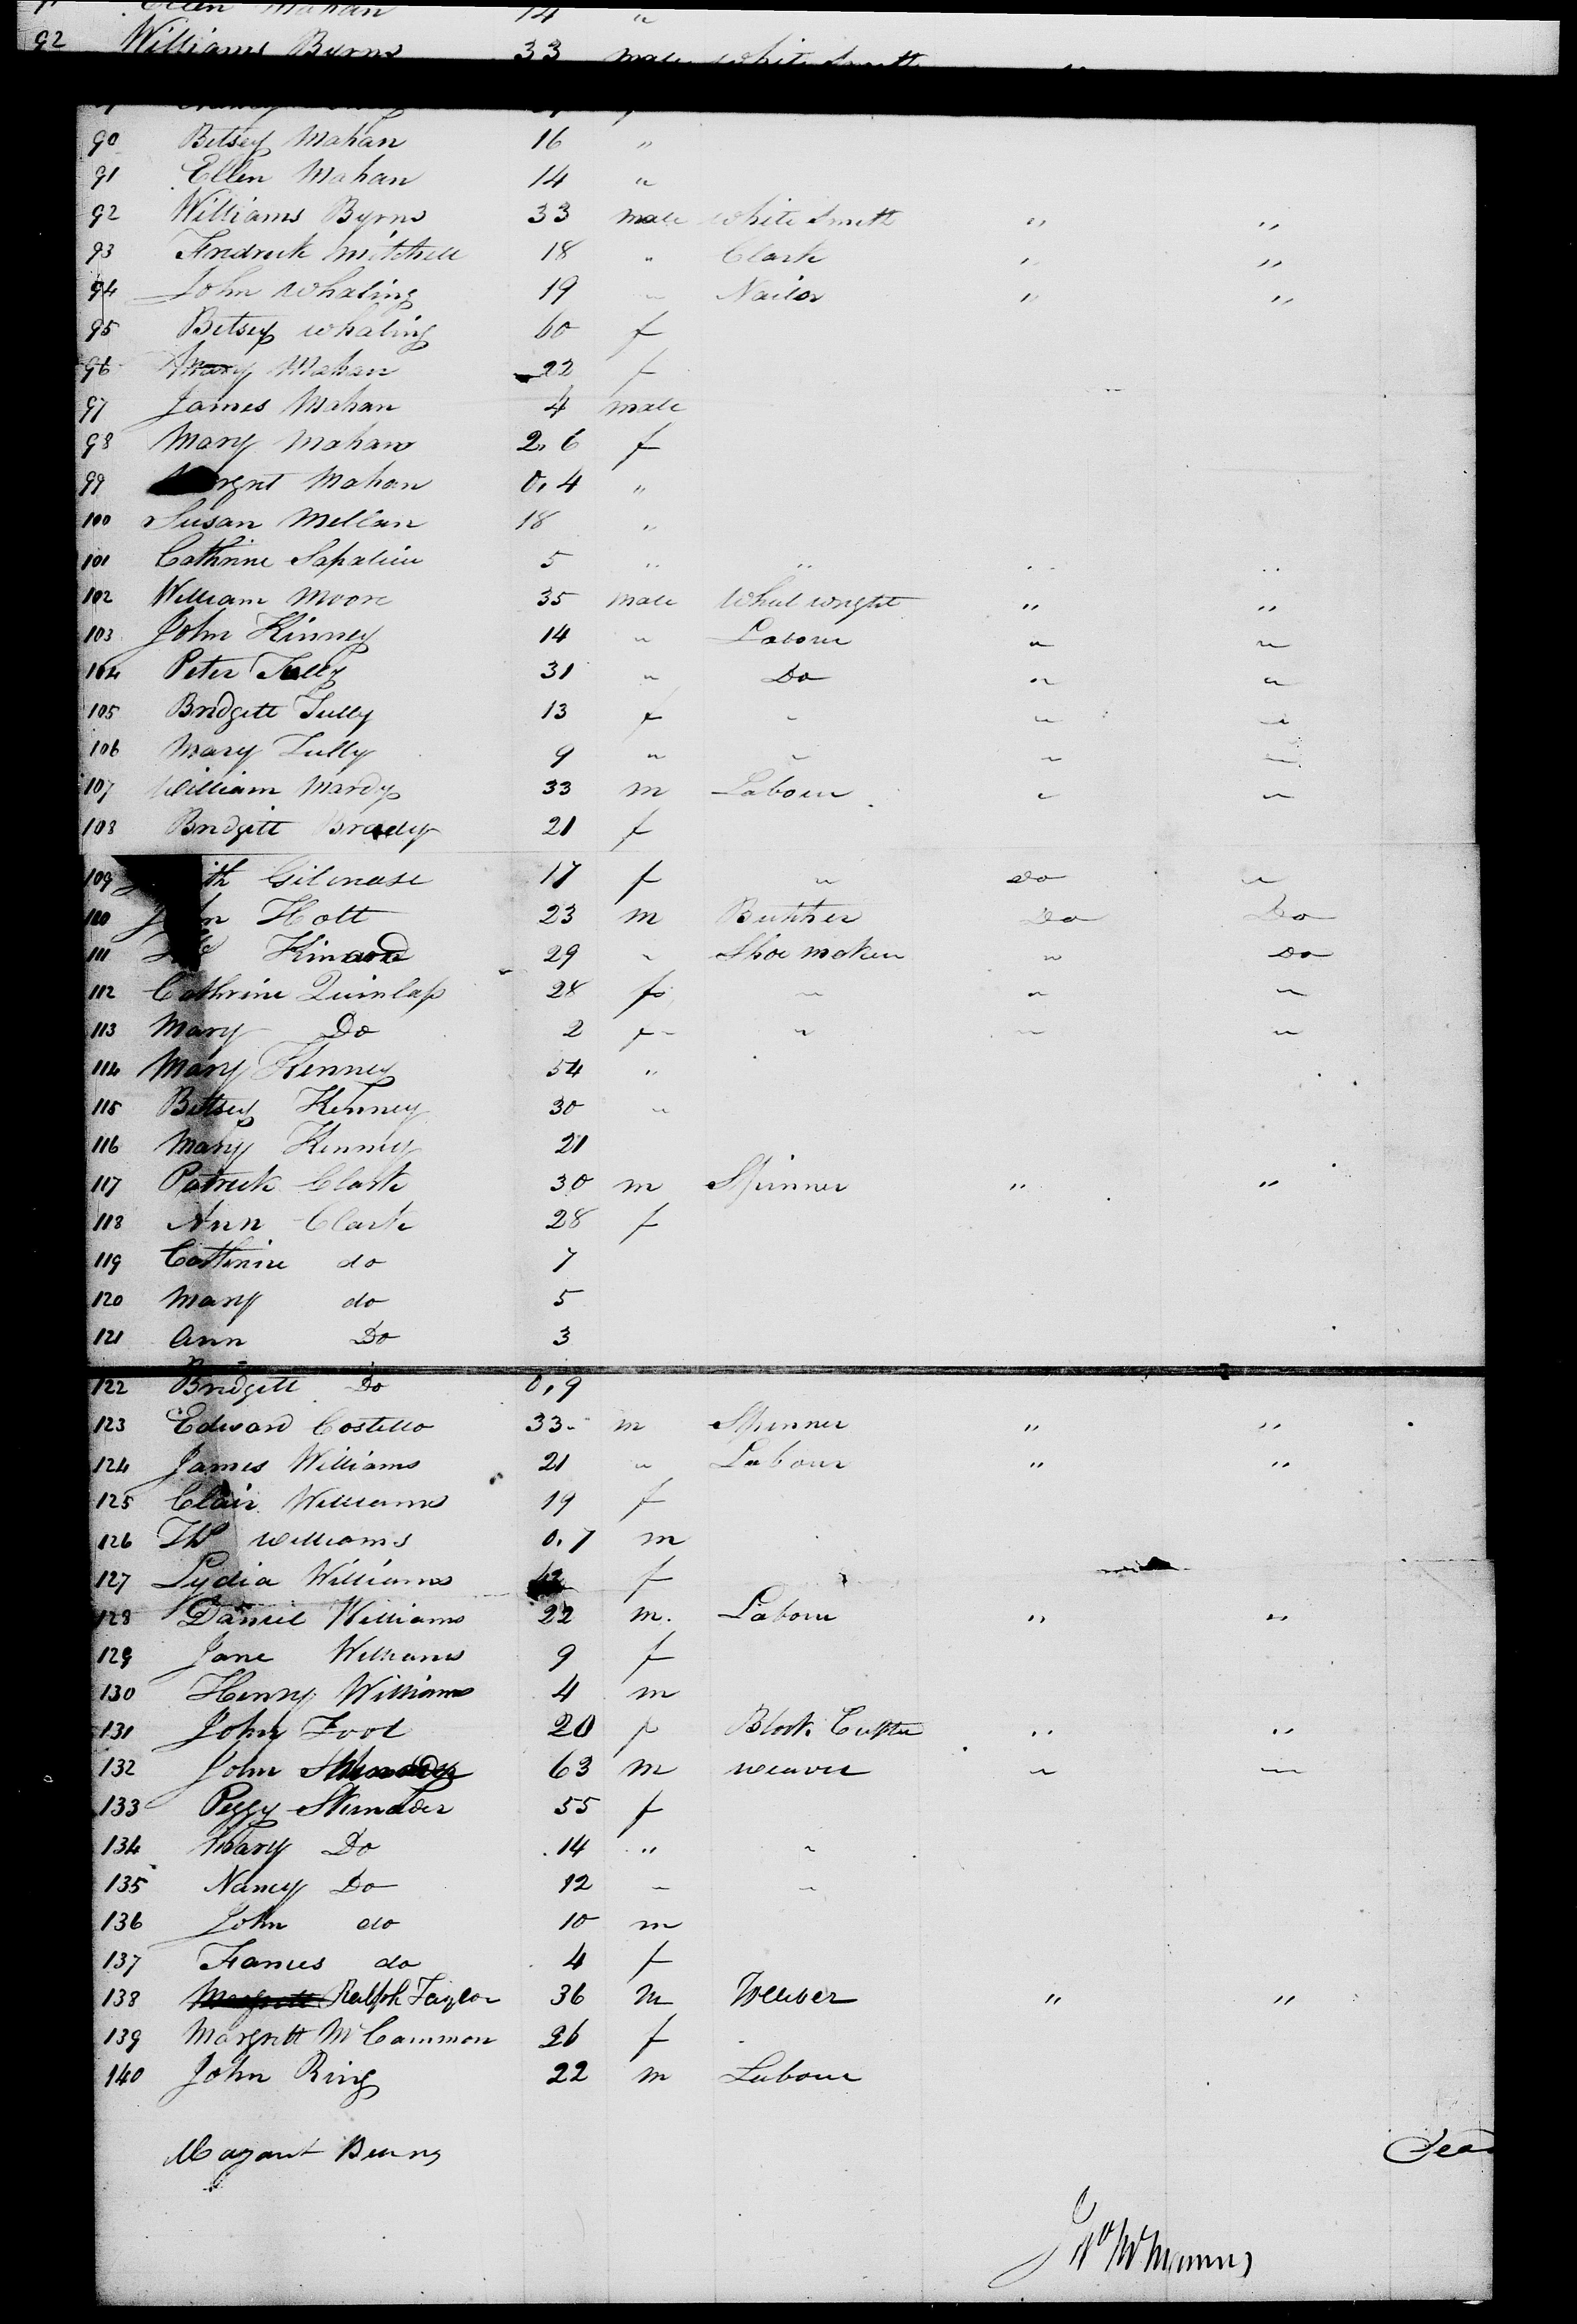 Ellen Mahan 14 "
92 Williams Byrns 33 male white Smith
90 Betsey Mahan 16 "
91 Ellen Mahan 14 "
92 Williams Byrns 33 male white Smith " "
93 Fredrick Mitchell 18 " Clark " "
94 John Whaling 19 " Nailor " "
95 Betsey Whaling 60 f
96 Mary Mahan 22 f
97 James Mahan 4 male
98 Mary Mahan 2,6 f
99 Mahan 0,4 "
100 Susan Mellan 18 "
101 Cathrine 5 " " " "
102 William Moore 35 male Wheel wright " "
103 John Kinney 14 " Labour " "
104 Peter Tully 31 " Do " "
105 Bridgett Tully 13 f " " "
106 Mary Tully 9 " " " "
107 William Mardy 33 m Labour " "
108 Bridgitt Brady 21 f
109 17 f " Do "
110 Holt 23 m Butcher Do Do
111 29 " Shoe maker " Do
112 Cathrine Quinlap 28 f " " "
113 Mary Do 2 f " " "
114 Mary Kenney 54 "
115 Bettsey Kenney 30 "
116 Mary Kenney 21
117 Patrick Clark 30 m Spinner " "
118 Ann Clark 28 f
119 Catherine do 7
120 Mary do 5
121 Ann Do 3
122 Bridgett Do 0,9
123 Edward Costello 33 m Spinner " "
124 James Williams 21 " Labour " "
125 Clair Williams 19 f
126 Williams 0,7 m
127 Lydia Williams f
128 Daniel Williams 22 m. Labour " "
129 Jane Williams 9 f
130 Henry Williams 4 m
131 John Foot 20 f Block Cutter " "
132 John 63 m weaver " "
133 Peggy 55 f
134 Mary Do 14 " "
135 Nancy Do 12 " "
136 John do 10 m
137 Frances do 4 f
138 Ralph Taylor 36 m Weaver " "
139 Margrett McCammon 26 f
140 John Ring 22 m Labour
Burns Dea
Jno McManus